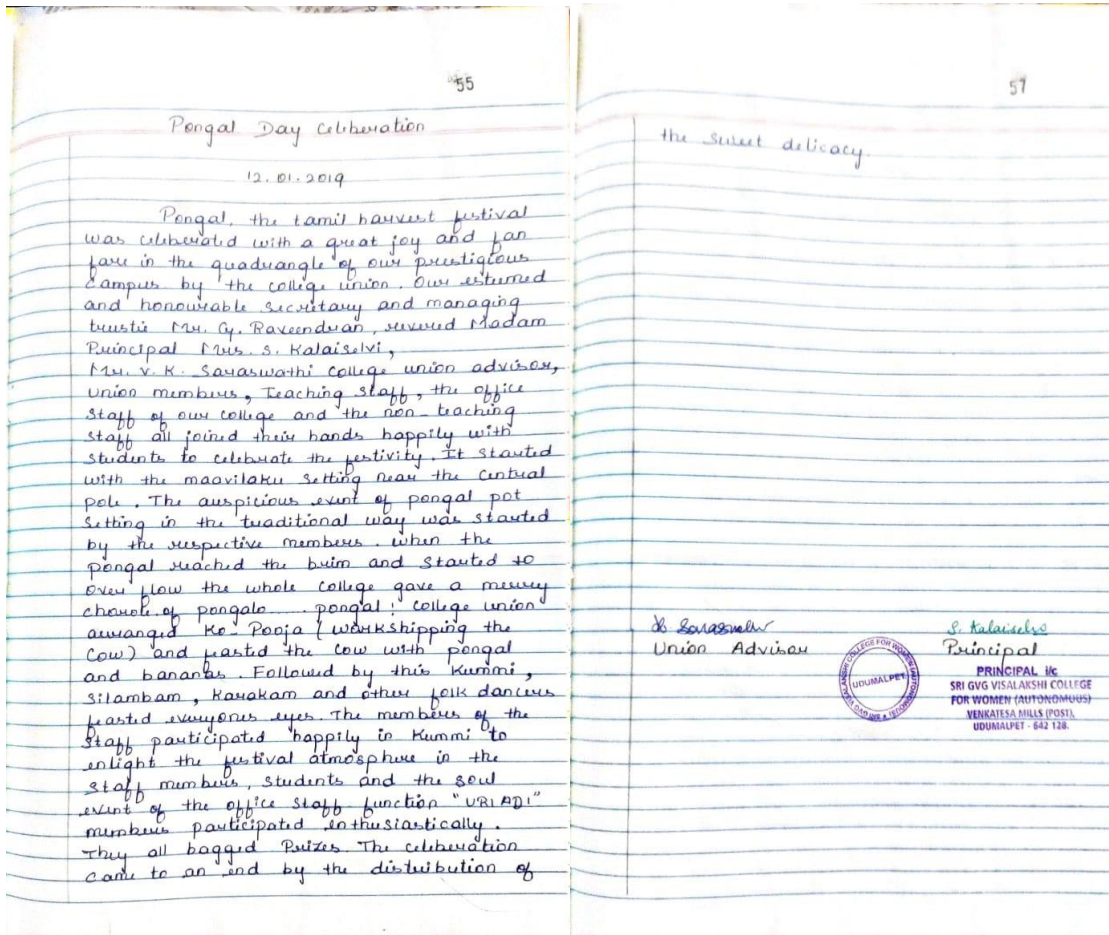 55
Pongal Day Celiberation
12.01.2019
Pongal, the tamil harvest festival
was celiberated with a great joy and fan
fare in the quadrangle of our prestigious
campus by the college union. Our esteemed
and honourable secretary and managing
trustie Mr. G. Raveendran, revered Madam
Principal Mrs. S. Kalaiselvi,
Mr. V. K. Saraswathi college union advisor,
union members, Teaching staff, the office
staff of our college and the non-teaching
staff all joined their hands happily with
students to celebrate the festivity. It started
with the maavilaku setting near the central
pole. The auspicious event of pongal pot
setting in the traditional way was started
by the respective members. when the
pongal reached the brim and started to
over flow the whole college gave a merry
of pongalo .... pongal! college union
arranged Ko-Pooja (workshipping the
cow) and feasted the cow with pongal
and bananas. Followed by this Kummi,
silambam, Karakam and other folk dancers
feasted everyones eyes. The members of the
staff participated happily in Kummi to
enlight the festival atmosphere in the
staff members, students and the soul
event of the office staff function "URI ADI"
members participated enthusiastically.
They all bagged Prizes. The celiberation
came to an end by the distribution of
57
the sweet delicacy.
Union Advisor
S. Kalaiselvi
Principal
PRINCIPAL i/c
SRI GVG VISALAKSHI COLLEGE
FOR WOMEN (AUTONOMOUS)
VENKATESA MILLS (POST),
UDUMALPET - 642 128.
SRI GVG VISALAKSHI COLLEGE FOR WOMEN (AUTONOMOUS)
UDUMALPET